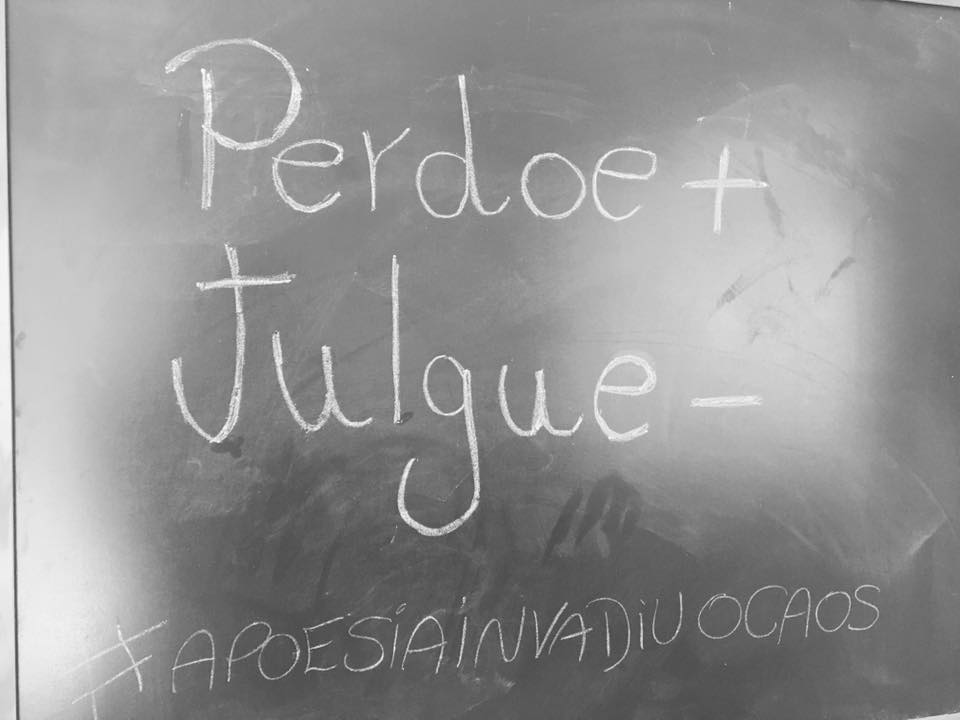 Perdoe +
Julgue -
#APOESiAiNVADiUOCAOS